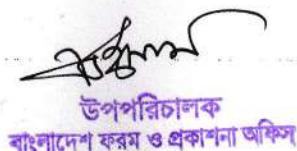 উপপরিচালক
বাংলাদেশ ফরম ও প্রকাশনা অফিস